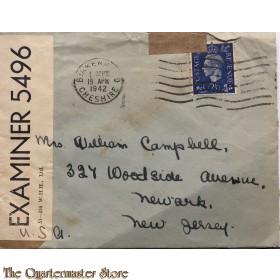 EXAMINER 5496
BIRKENHEAD
15 APR
1942
CHESHIRE
POSTAGE
REVENUE
Mrs. William Campbell,
327 Woodside Avenue,
Newark,
New Jersey.
U.S.A.
The Quartermaster Store